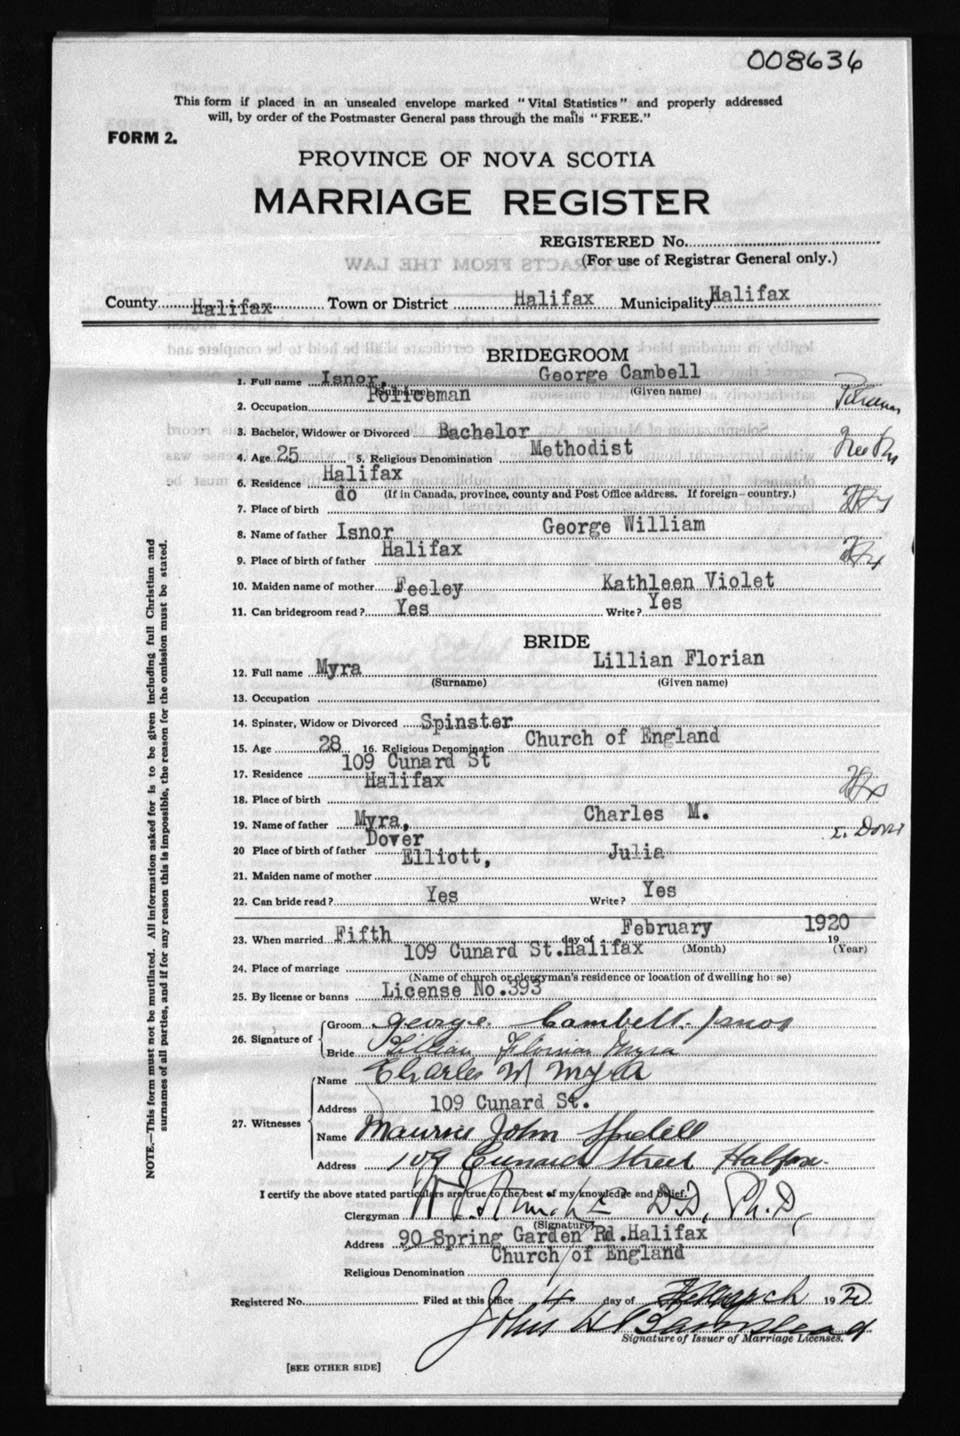 008636
This form if placed in an unsealed envelope marked "Vital Statistics" and properly addressed
will, by order of the Postmaster General pass through the mails "FREE."
FORM 2.
PROVINCE OF NOVA SCOTIA
MARRIAGE REGISTER
REGISTERED No.
(For use of Registrar General only.)
County Halifax Town or District Halifax Municipality Halifax
BRIDEGROOM
1. Full name Isnor, George Cambell
(Surname) (Given name)
2. Occupation Policeman
3. Bachelor, Widower or Divorced Bachelor
4. Age 25 5. Religious Denomination Methodist
6. Residence Halifax
(If in Canada, province, county and Post Office address. If foreign—country.)
7. Place of birth do
8. Name of father Isnor George William
9. Place of birth of father Halifax
10. Maiden name of mother Feeley Kathleen Violet
11. Can bridegroom read? Yes Write? Yes
BRIDE
12. Full name Myra Lillian Florian
(Surname) (Given name)
13. Occupation
14. Spinster, Widow or Divorced Spinster
15. Age 28 16. Religious Denomination Church of England
17. Residence 109 Cunard St
18. Place of birth Halifax Hfx
19. Name of father Myra, Charles M.
20 Place of birth of father Dover E. Dover
21. Maiden name of mother Elliott, Julia
22. Can bride read? Yes Write? Yes
23. When married Fifth day of February 1920
19
(Month) (Year)
24. Place of marriage 109 Cunard St.Halifax
(Name of church or clergyman's residence or location of dwelling house)
25. By license or banns License No.393
26. Signature of Groom George Cambell Isnor
Bride Lillian Florian Myra
27. Witnesses Name Charles M Myra
Address 109 Cunard St.
Name Maurice John
Address 109 Cunard Street Halifax
I certify the above stated particulars are true to the best of my knowledge and belief.
Clergyman D.D., Ph.D,
(Signature)
Address 90 Spring Garden Rd.Halifax
Religious Denomination Church of England
Registered No. Filed at this office 4 day of March 1920
John H Barnstead
Signature of Issuer of Marriage Licenses.
[SEE OTHER SIDE]
NOTE.—This form must not be mutilated. All information asked for is to be given including full Christian and
surnames of all parties, and if for any reason this is impossible, the reason for the omission must be stated.